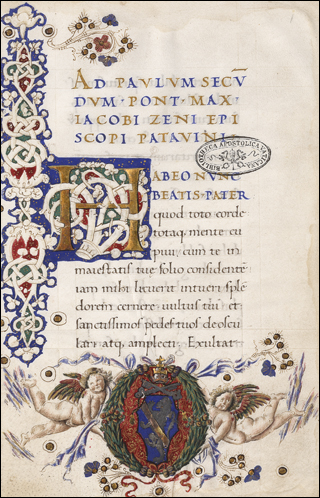 AD·PAVLVM·SECV̄
DVM·PONT·MAX·
IACOBI·ZENI·EPI
SCOPI·PATAVINI·
HABEO NVNC
BEATIS·PATER
quod toto corde
totaq mente cu
piui, cum te in
maiestatis tue solio considentē
iam mihi licuerit intueri splē
dorem cernere uultus tui et
sanctissimos pedes tuos deoscu
lari atq amplecti. Exultat
BIBLIOTHECA APOSTOLICA VATICANA